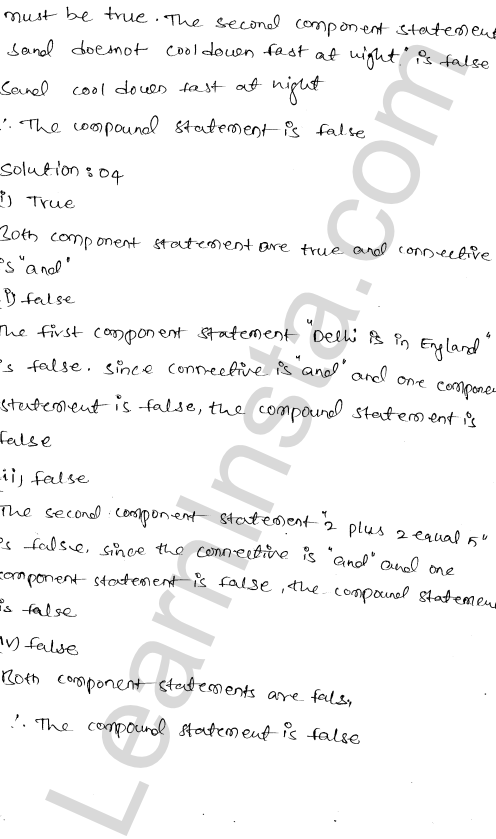 must be true. The second component statement
Sand doesnot cool down fast at night." is false
Sand cool down fast at night
∴ The compound statement is false
Solution: 04
i) True
Both component statement are true and connective
is "and"
i) false
The first component statement "Delhi is in England"
is false. since connective is "and" and one compone
statement is false, the compound statement is
false
iii) false
The second component statement "2 plus 2 equal 5"
is false, since the connective is "and" and one
component statement is false, the compound statemen
is false
iv) false
Both component statements are fals,
∴ The compound statement is false
Learninsta.com